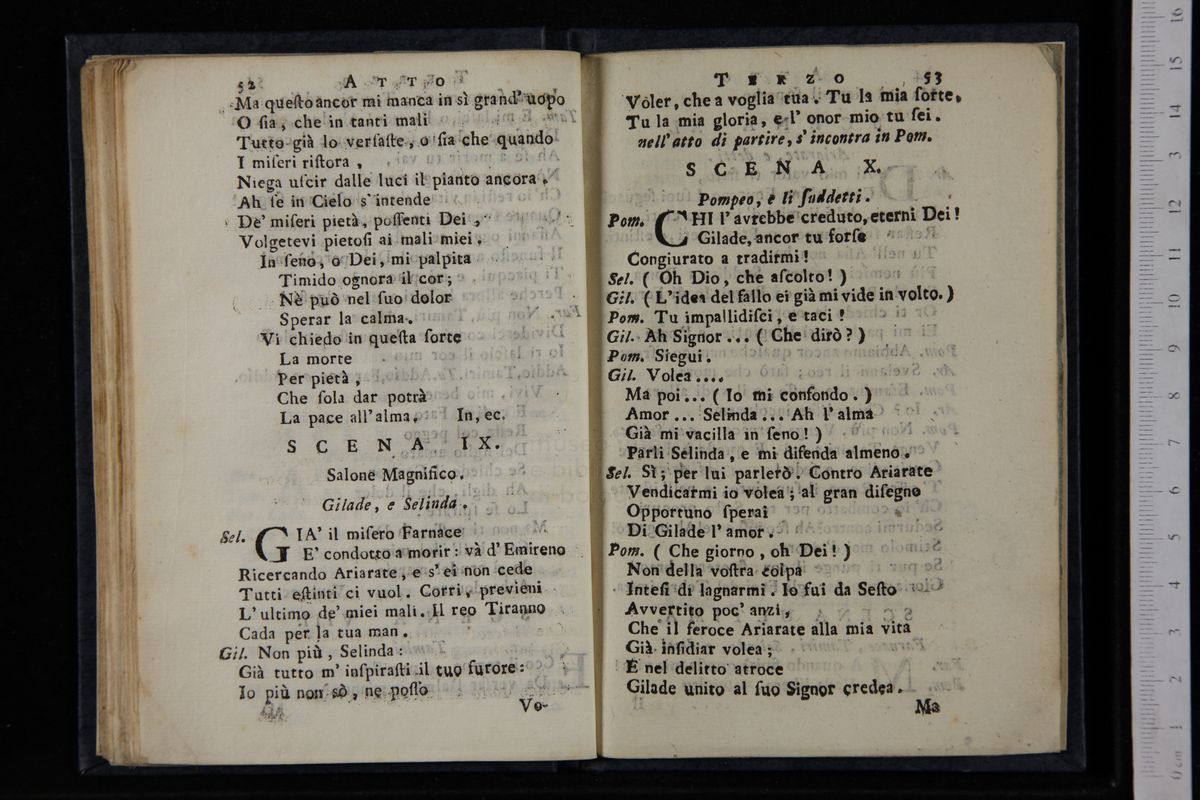 52 ATTO
Ma queſto ancor mi manca in sì grand' uopo
O ſia, che in tanti mali
Tutto già lo verſaſte, o ſia che quando
I miſeri riſtora,
Niega uſcir dalle luci il pianto ancora.
Ah ſe in Cielo s' intende
De' miſeri pietà, poſſenti Dei,
Volgetevi pietoſi ai mali miei.
In ſeno, o Dei, mi palpita
Timido ognora il cor;
Nè può nel ſuo dolor
Sperar la calma.
Vi chiedo in queſta ſorte
La morte
Per pietà,
Che ſola dar potrà
La pace all' alma. In, ec.
SCENA IX.
Salone Magnifico.
Gilade, e Selinda.
Sel. GIA' il miſero Farnace
E' condotto a morir: và d' Emireno
Ricercando Ariarate, e s' ei non cede
Tutti eſtinti ci vuol. Corri, previeni
L' ultimo de' miei mali. Il reo Tiranno
Cada per la tua man.
Gil. Non più, Selinda:
Già tutto m' inſpiraſti il tuo furore:
Io più non sò, ne poſſo
Vo-
TERZO 53
Voler, che a voglia tua. Tu la mia ſorte,
Tu la mia gloria, e l' onor mio tu ſei.
nell' atto di partire, s' incontra in Pom.
SCENA X.
Pompeo, e li ſuddetti.
Pom. CHI l' avrebbe creduto, eterni Dei!
Gilade, ancor tu forſe
Congiurato a tradirmi!
Sel. ( Oh Dio, che aſcolto! )
Gil. ( L' idea del fallo ei già mi vide in volto. )
Pom. Tu impallidiſci, e taci!
Gil. Ah Signor... ( Che dirò? )
Pom. Siegui.
Gil. Volea....
Ma poi... ( Io mi confondo. )
Amor... Selinda... Ah l' alma
Già mi vacilla in ſeno! )
Parli Selinda, e mi difenda almeno.
Sel. Sì; per lui parlerò. Contro Ariarate
Vendicarmi io volea; al gran diſegno
Opportuno ſperai
Di Gilade l' amor.
Pom. ( Che giorno, oh Dei! )
Non della voſtra colpa
Inteſi di lagnarmi. Io fui da Seſto
Avvertito poc' anzi,
Che il feroce Ariarate alla mia vita
Già inſidiar volea;
E nel delitto atroce
Gilade unito al ſuo Signor credea.
Ma